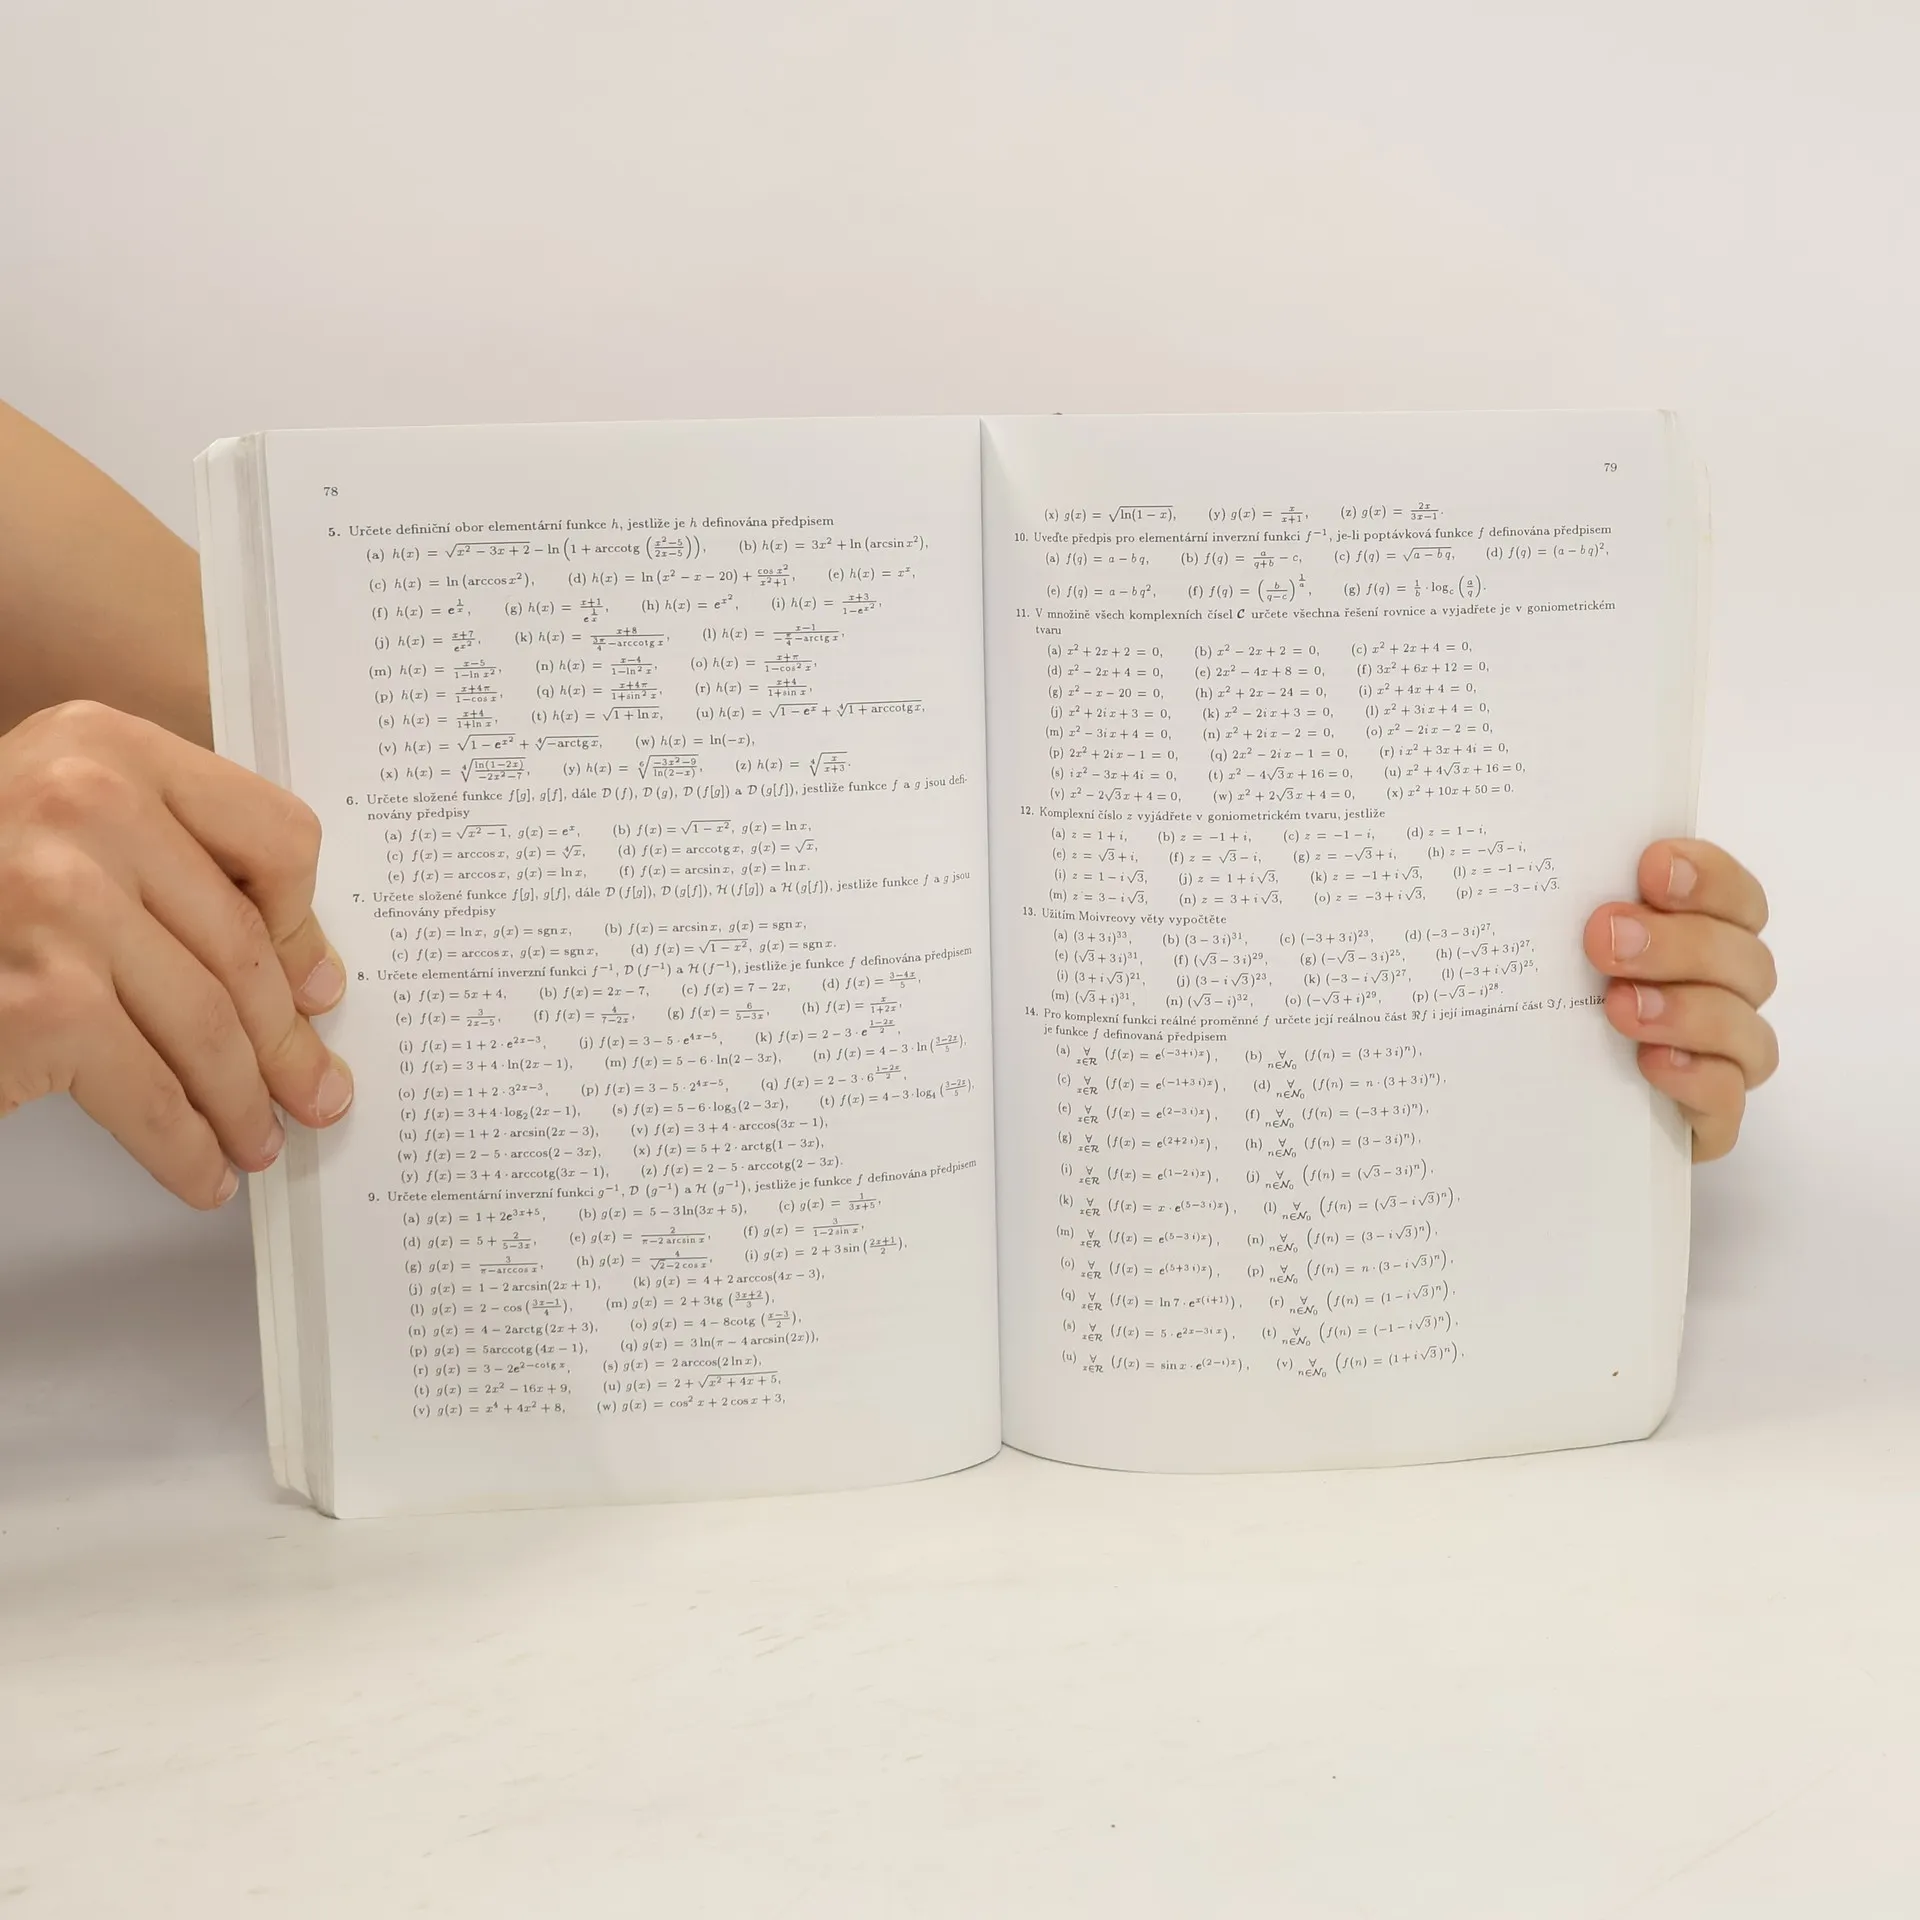 78
5. Určete definiční obor elementární funkce h, jestliže je h definována předpisem
(a) h(x) = √(x² − 3x + 2) − ln (1 + arccotg ((x²−5)/(2x−5))), (b) h(x) = 3x² + ln (arcsin x²),
(c) h(x) = ln (arccos x²), (d) h(x) = ln (x² − x − 20) + (cos x²)/(x²+1), (e) h(x) = xˣ,
(f) h(x) = e^(1/x), (g) h(x) = (x+1)/(e^(1/x)), (h) h(x) = e^(x²), (i) h(x) = (x+3)/(1−e^(x²)),
(j) h(x) = (x+7)/(e^(x²)), (k) h(x) = (x+8)/(3π/4 −arccotg x), (l) h(x) = (x−1)/(−π/4 −arctg x),
(m) h(x) = (x−5)/(1−ln x²), (n) h(x) = (x−4)/(1−ln² x), (o) h(x) = (x+π)/(1−cos² x),
(p) h(x) = (x+4π)/(1−cos x), (q) h(x) = (x+4π)/(1+sin² x), (r) h(x) = (x+4)/(1+sin x),
(s) h(x) = (x+4)/(1+ln x), (t) h(x) = √(1 + ln x), (u) h(x) = √(1 − eˣ) + ∜(1 + arccotg x),
(v) h(x) = √(1 − e^(x²)) + ∜(−arctg x), (w) h(x) = ln(−x),
(x) h(x) = ∜(ln(1−2x)/(−2x²−7)), (y) h(x) = ⁶√((−3x²−9)/ln(2−x)), (z) h(x) = ∜(x/(x+3)).
6. Určete složené funkce f[g], g[f], dále D (f), D (g), D (f[g]) a D (g[f]), jestliže funkce f a g jsou defi-
novány předpisy
(a) f(x) = √(x² − 1), g(x) = eˣ, (b) f(x) = √(1 − x²), g(x) = ln x,
(c) f(x) = arccos x, g(x) = ∜x, (d) f(x) = arccotg x, g(x) = √x,
(e) f(x) = arccos x, g(x) = ln x, (f) f(x) = arcsin x, g(x) = ln x.
7. Určete složené funkce f[g], g[f], dále D (f[g]), D (g[f]), H (f[g]) a H (g[f]), jestliže funkce f a g jsou
definovány předpisy
(a) f(x) = ln x, g(x) = sgn x, (b) f(x) = arcsin x, g(x) = sgn x,
(c) f(x) = arccos x, g(x) = sgn x, (d) f(x) = √(1 − x²), g(x) = sgn x.
8. Určete elementární inverzní funkci f⁻¹, D (f⁻¹) a H (f⁻¹), jestliže je funkce f definována předpisem
(a) f(x) = 5x + 4, (b) f(x) = 2x − 7, (c) f(x) = 7 − 2x, (d) f(x) = (3−4x)/5,
(e) f(x) = 3/(2x−5), (f) f(x) = 4/(7−2x), (g) f(x) = 6/(5−3x), (h) f(x) = x/(1+2x),
(i) f(x) = 1 + 2 · e^(2x−3), (j) f(x) = 3 − 5 · e^(4x−5), (k) f(x) = 2 − 3 · e^((1−2x)/2),
(l) f(x) = 3 + 4 · ln(2x − 1), (m) f(x) = 5 − 6 · ln(2 − 3x), (n) f(x) = 4 − 3 · ln ((3−2x)/5),
(o) f(x) = 1 + 2 · 3^(2x−3), (p) f(x) = 3 − 5 · 2^(4x−5), (q) f(x) = 2 − 3 · 6^((1−2x)/2),
(r) f(x) = 3 + 4 · log₂(2x − 1), (s) f(x) = 5 − 6 · log₃(2 − 3x), (t) f(x) = 4 − 3 · log₄ ((3−2x)/5),
(u) f(x) = 1 + 2 · arcsin(2x − 3), (v) f(x) = 3 + 4 · arccos(3x − 1),
(w) f(x) = 2 − 5 · arccos(2 − 3x), (x) f(x) = 5 + 2 · arctg(1 − 3x),
(y) f(x) = 3 + 4 · arccotg(3x − 1), (z) f(x) = 2 − 5 · arccotg(2 − 3x).
9. Určete elementární inverzní funkci g⁻¹, D (g⁻¹) a H (g⁻¹), jestliže je funkce f definována předpisem
(a) g(x) = 1 + 2e^(3x+5), (b) g(x) = 5 − 3 ln(3x + 5), (c) g(x) = 1/(3x+5),
(d) g(x) = 5 + 2/(5−3x), (e) g(x) = 2/(π−2 arcsin x), (f) g(x) = 3/(1−2 sin x),
(g) g(x) = 3/(π−arccos x), (h) g(x) = 4/(√2−2 cos x), (i) g(x) = 2 + 3 sin ((2x+1)/2),
(j) g(x) = 1 − 2 arcsin(2x + 1), (k) g(x) = 4 + 2 arccos(4x − 3),
(l) g(x) = 2 − cos ((3x−1)/4), (m) g(x) = 2 + 3tg ((3x+2)/3),
(n) g(x) = 4 − 2arctg (2x + 3), (o) g(x) = 4 − 8cotg ((x−3)/2),
(p) g(x) = 5arccotg (4x − 1), (q) g(x) = 3 ln(π − 4 arcsin(2x)),
(r) g(x) = 3 − 2e^(2−cotg x), (s) g(x) = 2 arccos(2 ln x),
(t) g(x) = 2x² − 16x + 9, (u) g(x) = 2 + √(x² + 4x + 5),
(v) g(x) = x⁴ + 4x² + 8, (w) g(x) = cos² x + 2 cos x + 3,
79
(x) g(x) = √(ln(1 − x)), (y) g(x) = x/(x+1), (z) g(x) = 2x/(3x−1).
10. Uveďte předpis pro elementární inverzní funkci f⁻¹, je-li poptávková funkce f definována předpisem
(a) f(q) = a − b q, (b) f(q) = a/(q+b) − c, (c) f(q) = √(a − b q), (d) f(q) = (a − b q)²,
(e) f(q) = a − b q², (f) f(q) = (b/(q−c))^(1/a), (g) f(q) = 1/b · log_c (a/q).
11. V množině všech komplexních čísel C určete všechna řešení rovnice a vyjadřete je v goniometrickém
tvaru
(a) x² + 2x + 2 = 0, (b) x² − 2x + 2 = 0, (c) x² + 2x + 4 = 0,
(d) x² − 2x + 4 = 0, (e) 2x² − 4x + 8 = 0, (f) 3x² + 6x + 12 = 0,
(g) x² − x − 20 = 0, (h) x² + 2x − 24 = 0, (i) x² + 4x + 4 = 0,
(j) x² + 2i x + 3 = 0, (k) x² − 2i x + 3 = 0, (l) x² + 3i x + 4 = 0,
(m) x² − 3i x + 4 = 0, (n) x² + 2i x − 2 = 0, (o) x² − 2i x − 2 = 0,
(p) 2x² + 2i x − 1 = 0, (q) 2x² − 2i x − 1 = 0, (r) i x² + 3x + 4i = 0,
(s) i x² − 3x + 4i = 0, (t) x² − 4√3 x + 16 = 0, (u) x² + 4√3 x + 16 = 0,
(v) x² − 2√3 x + 4 = 0, (w) x² + 2√3 x + 4 = 0, (x) x² + 10x + 50 = 0.
12. Komplexní číslo z vyjádřete v goniometrickém tvaru, jestliže
(a) z = 1 + i, (b) z = −1 + i, (c) z = −1 − i, (d) z = 1 − i,
(e) z = √3 + i, (f) z = √3 − i, (g) z = −√3 + i, (h) z = −√3 − i,
(i) z = 1 − i √3, (j) z = 1 + i √3, (k) z = −1 + i √3, (l) z = −1 − i √3,
(m) z = 3 − i √3, (n) z = 3 + i √3, (o) z = −3 + i √3, (p) z = −3 − i √3.
13. Užitím Moivreovy věty vypočtěte
(a) (3 + 3 i)³³, (b) (3 − 3 i)³¹, (c) (−3 + 3 i)²³, (d) (−3 − 3 i)²⁷,
(e) (√3 + 3 i)³¹, (f) (√3 − 3 i)²⁹, (g) (−√3 − 3 i)²⁵, (h) (−√3 + 3 i)²⁷,
(i) (3 + i √3)²¹, (j) (3 − i √3)²³, (k) (−3 − i √3)²⁷, (l) (−3 + i √3)²⁵,
(m) (√3 + i)³¹, (n) (√3 − i)³², (o) (−√3 + i)²⁹, (p) (−√3 − i)²⁸.
14. Pro komplexní funkci reálné proměnné f určete její reálnou část ℜf i její imaginární část ℑf, jestliže
je funkce f definovaná předpisem
(a) ∀ x∈R (f(x) = e^((−3+i)x)), (b) ∀ n∈N₀ (f(n) = (3 + 3 i)ⁿ),
(c) ∀ x∈R (f(x) = e^((−1+3 i)x)), (d) ∀ n∈N₀ (f(n) = n · (3 + 3 i)ⁿ),
(e) ∀ x∈R (f(x) = e^((2−3 i)x)), (f) ∀ n∈N₀ (f(n) = (−3 + 3 i)ⁿ),
(g) ∀ x∈R (f(x) = e^((2+2 i)x)), (h) ∀ n∈N₀ (f(n) = (3 − 3 i)ⁿ),
(i) ∀ x∈R (f(x) = e^((1−2 i)x)), (j) ∀ n∈N₀ (f(n) = (√3 − 3 i)ⁿ),
(k) ∀ x∈R (f(x) = x · e^((5−3 i)x)), (l) ∀ n∈N₀ (f(n) = (√3 − i √3)ⁿ),
(m) ∀ x∈R (f(x) = e^((5−3 i)x)), (n) ∀ n∈N₀ (f(n) = (3 − i √3)ⁿ),
(o) ∀ x∈R (f(x) = e^((5+3 i)x)), (p) ∀ n∈N₀ (f(n) = n · (3 − i √3)ⁿ),
(q) ∀ x∈R (f(x) = ln 7 · e^(x(i+1))), (r) ∀ n∈N₀ (f(n) = (1 − i √3)ⁿ),
(s) ∀ x∈R (f(x) = 5 · e^(2x−3i x)), (t) ∀ n∈N₀ (f(n) = (−1 − i √3)ⁿ),
(u) ∀ x∈R (f(x) = sin x · e^((2−i)x)), (v) ∀ n∈N₀ (f(n) = (1 + i √3)ⁿ),